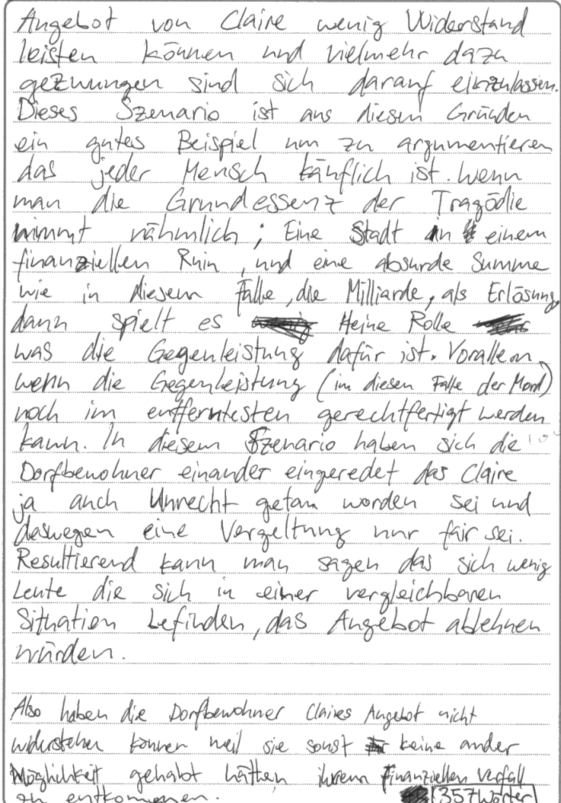 Angebot von Claire wenig Widerstand
leisten können und vielmehr dazu
gezwungen sind sich darauf einzulassen.
Dieses Szenario ist aus diesen Gründen
ein gutes Beispiel um zu argumentieren
das jeder Mensch käuflich ist. Wenn
man die Grundessenz der Tragödie
nimmt nähmlich; Eine Stadt in einem
finanziellen Ruin, und eine absurde Summe
wie in diesem Falle, die Milliarde, als Erlösung,
dann spielt es keine Rolle
was die Gegenleistung dafür ist. Vorallem,
wenn die Gegenleistung (im diesen Falle der Mord)
noch im entferntesten gerechtfertigt werden
kann. In diesem Szenario haben sich die
Dorfbewohner einander eingeredet das Claire
ja auch Unrecht getan worden sei und
deswegen eine Vergeltung nur fair sei.
Resultierend kann man sagen das sich wenig
Leute die sich in einer vergleichbaren
Situation befinden, das Angebot ablehnen
würden.
Also haben die Dorfbewohner Claires Angebot nicht
widerstehen können weil sie sonst keine ander
Möglichkeit gehabt hätten ihrem finanziellen Verfall
zu entkommen. (357 Wörter)